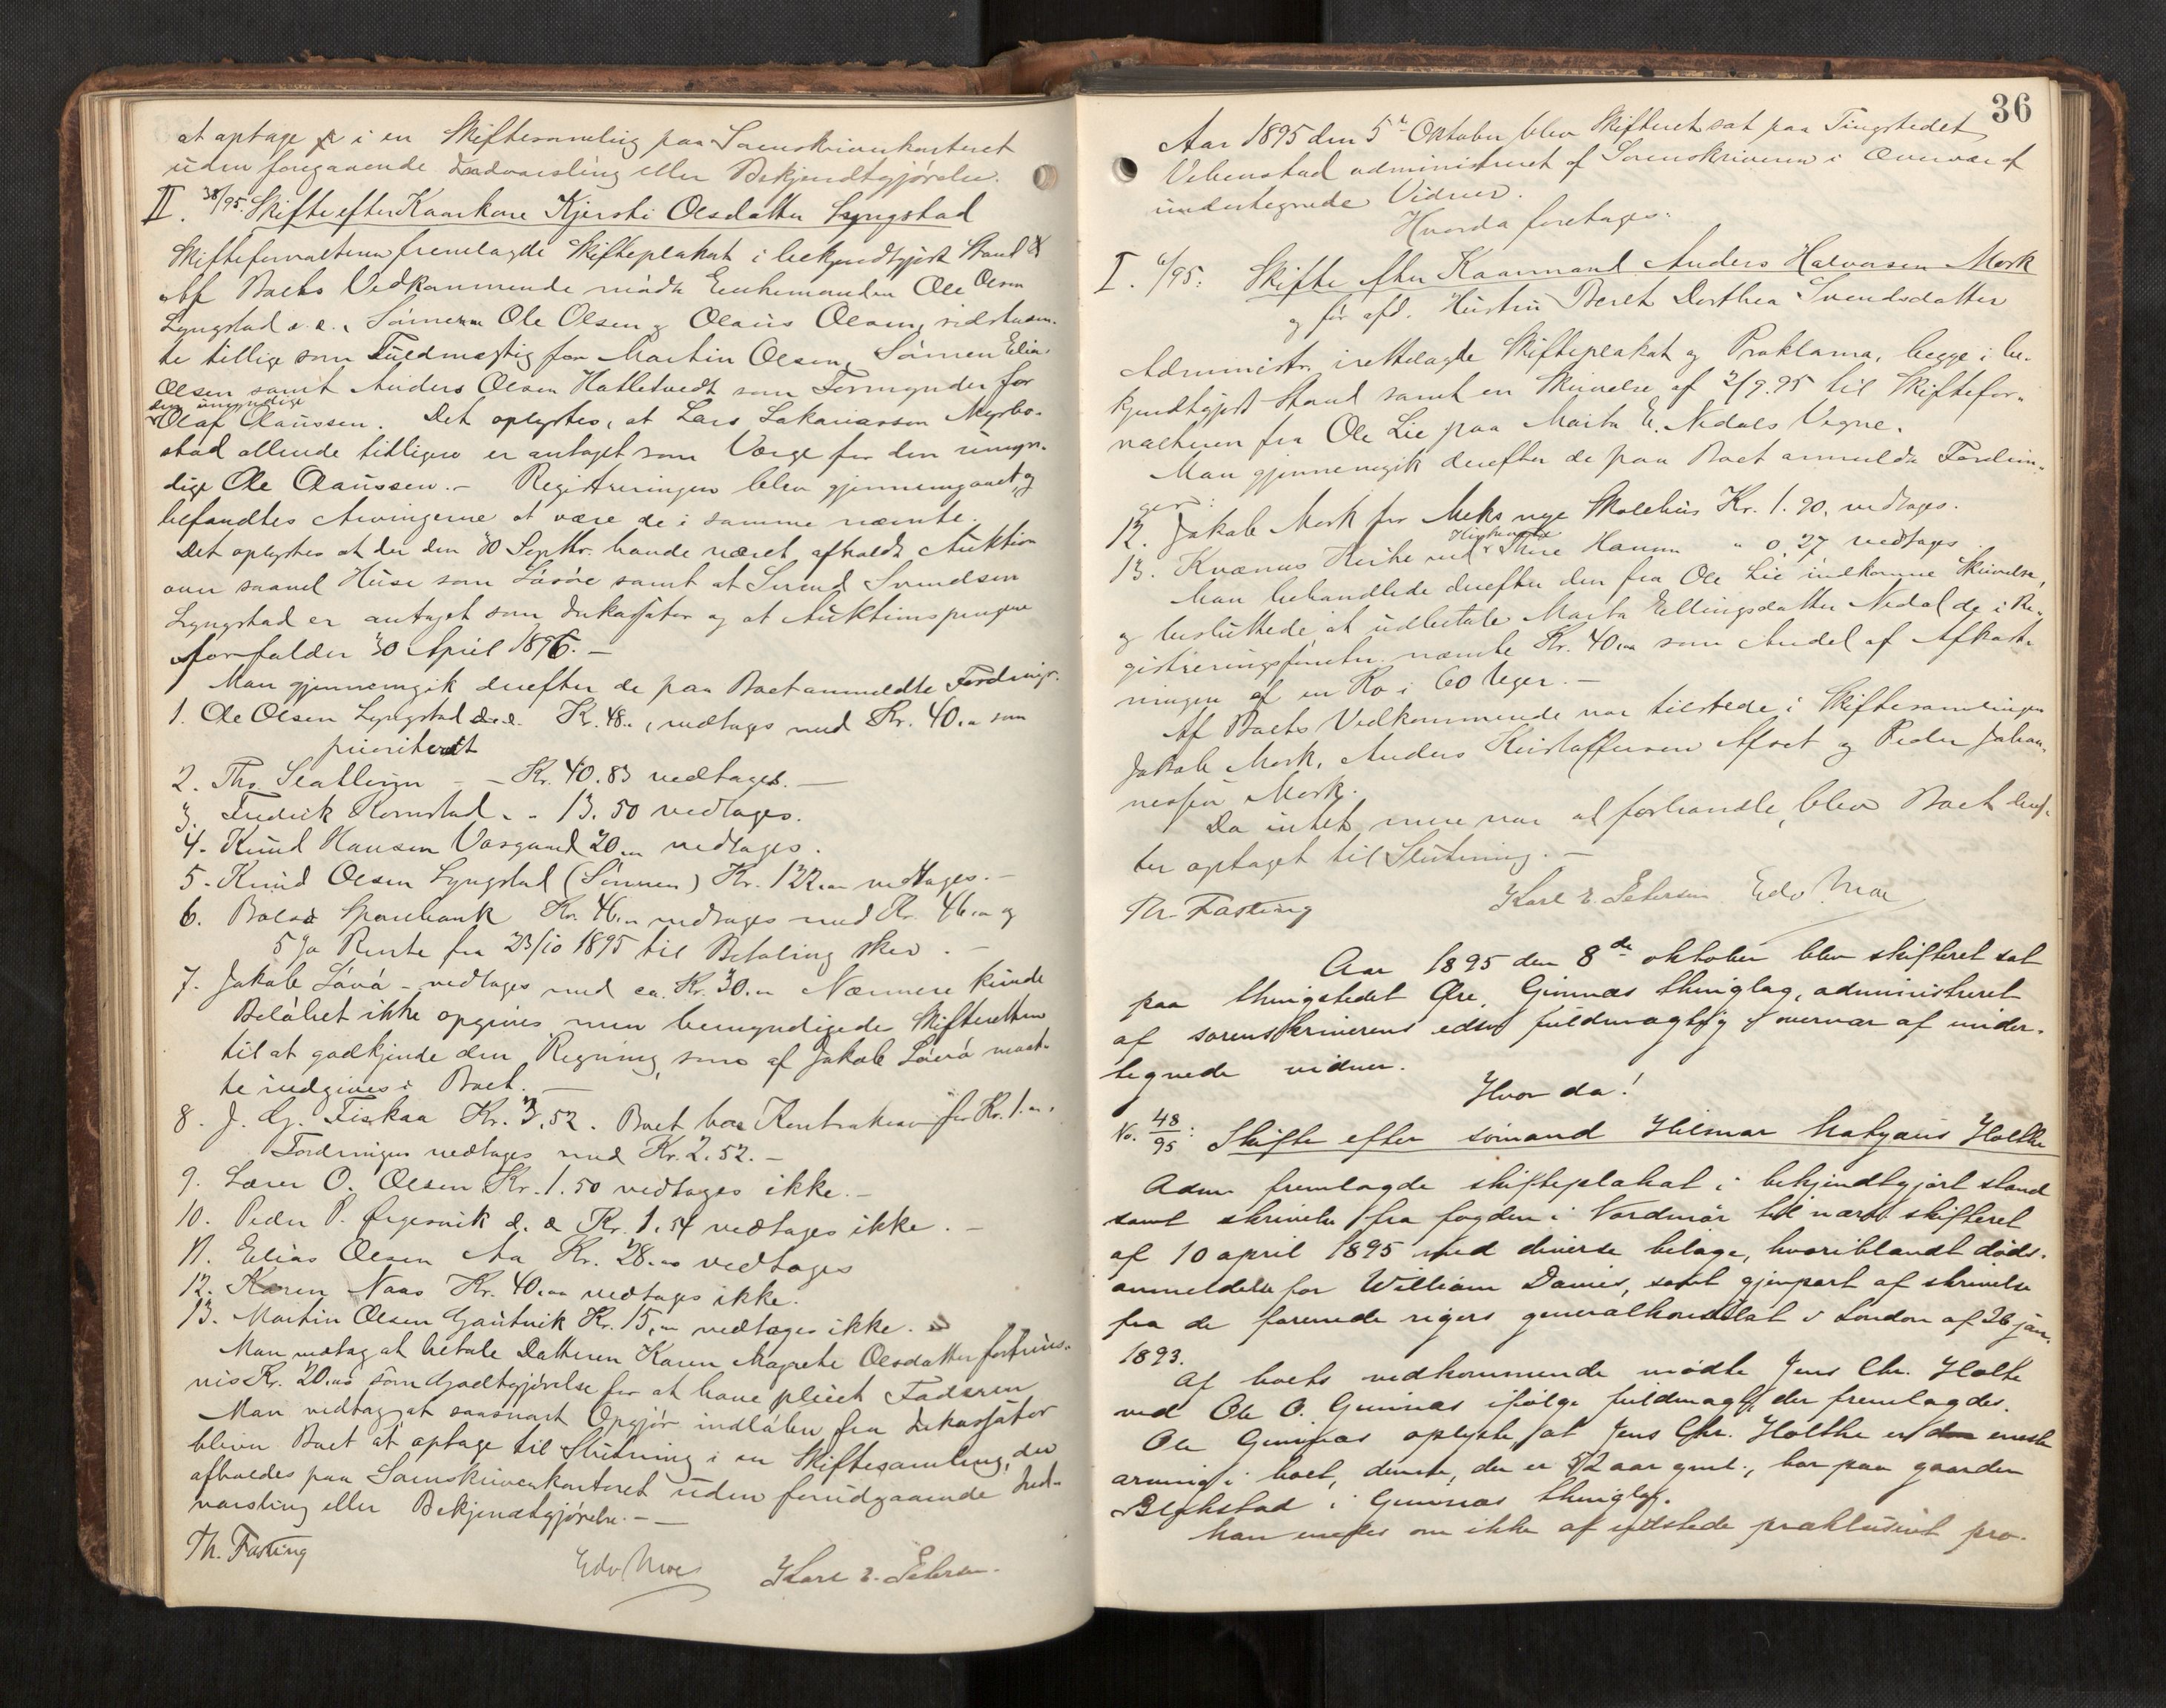 at optage i en Skiftesamling paa Sorenskriverkontoret
uden foregaaende Indvarsling eller Bekjendtgjørelse.
II. 38/95. Skifte efter Kaarkone Kjersti Olsdatter Lyngstad
Skifteforvalteren fremlagde Skifteplakat i bekjendtgjort Stand
Af Boets Vedkommende mødte Enkemanden Ole Olsen
Lyngstad d. e., Sønnerne Ole Olsen og Olaus Olsen, sidstnævn-
te tillige som Fuldmægtig for Martin Olsen, Sønnen Elias
Olsen samt Anders Olsen Hatletvedt som Formynder for
den umyndige
Olaf Olaussen. Det oplystes, at Lars Sakariassen Myrbo-
stad allerede tidligere er antaget som Værge for den umyn-
dige Ole Olaussen.- Registreringen blev gjennemgaaet, og
befandtes Arvingerne at være de i samme nævnte.
Det oplystes at der den 30 Septbr. havde været afholdt Auktion
over saavel Huse som Løsøre samt at Svend Svendsen
Lyngstad er antaget som Inkassator og at Auktionspengene
forfalder 30 April 1896.-
Man gjennemgik derefter de paa Boet anmeldte Fordringr.
1. Ole Olsen Lyngstad d.e. Kr. 48.. , vedtages med Kr. 40.. som
prioriteret
2. Ths. - - Kr. 40.83 vedtages.-
3. Fredrik Kornstad - - 13.50 vedtages.
4. Knud Hansen Vasgaard 20.. vedtages.
5. Knud Olsen Lyngstad (Sønnen) Kr. 122.. vedtages.-
6. Bolsø Sparebank Kr. 46.. vedtages med Kr. 46.. og
5 % Rente fra 23/10 1895 til Betaling sker.-
7. Jakob Løvø - vedtages med ca. Kr. 30.. Nærmere kunde
Beløbet ikke opgives men bemyndigede Skifteretten
til at godkjende den Regning, som af Jakob Løvø maat-
te indgives i Boet.-
8. J. G. Fiskaa Kr. 3.52. Boet har Kontrakrav for Kr. 1...
Fordringen vedtages med Kr. 2.52.-
9. Lærer O. Olsen Kr. 1.50 vedtages ikke.-
10. Peder P. Ørgesvik d. e. Kr. 1.54 vedtages ikke.-
11. Elias Olsen Aa Kr. 28.. vedtages
12. Karen Naas Kr. 40.. vedtages ikke.
13. Martin Olsen Gautvik Kr. 15,.. vedtages ikke.
Man vedtog at betale Datteren Karen Magrete Olsdatter fortrins-
vis Kr. 20.. som Godtgjørelse for at have pleiet Faderen
Man vedtog at saasnart Opgjør indløber fra Inkassator
bliver Boet at optage til Slutning i en Skiftesamling, der
afholdes paa Sorenskriverkontoret uden forudgaaende Ind-
varsling eller Bekjendtgjørelse.-
Th. Fasting
Edv Moe Karl E. Petersen.
36
Aar 1895 den 5te Oktober blev Skifteret sat paa Tingstedet
Vebenstad administreret af Sorenskriveren i Overvær af
undertegnede Vidner.
Hvorda foretages:
I. 6/95: Skifte efter Kaarmand Anders Halvorsen Mork
og før afd. Hustru Beret Dorthea Svendsdatter
Administr. irettelagde Skifteplakat og Proklama, begge i be-
kjendtgjort Stand samt en Skrivelse af 2/9.95 til Skiftefor-
valteren fra Ole Lie paa Marta E. Nedals Vegne.
Man gjennemgik derefter de paa Boet anmeldte Fordrin-
ger:
12. Jakob Mork for Meks nye Skolehus Kr. 1.90. vedtages.
13. Kvænns Kirke ved Kirkeværge Hansen " 0,27 vedtages
Man behandlede derefter den fra Ole Lie indkomne Skrivelse,
og besluttede at udbetale Marta Ellingsdatter Nedal de i Re-
gistreringsforretn. nævnte Kr. 40.. som Andel af Afkast-
ningen af en Ko i 60 Uger.-
Af Boets Vedkommende var tilstede i Skiftesamlingen
Jakob Mork, Anders Kristoffersen og Peder Johan-
nessen Mork.
Da intet mere var at forhandle, blev Boet deref-
ter optaget til Slutning.-
Th. Fasting Karl E. Petersen Edv Moe
Aar 1895 den 8de oktober blev skifteret sat
paa thingstedet Øre, Gimnæs thinglag, administreret
af sorenskriverens edsv fuldmægtig i overvær af under-
tegnede vidner.
Hvor da!
No. 48/95: Skifte efter sømand Hilmar Holthe
Adm fremlagde skifteplakat i bekjendtgjort stand
samt skrivelse fra fogden i Nordmør til nærv. skifteret
af 10 april 1895 med diverse bilage, hvoriblandt døds-
anmeldelse for William Davies, samt gjenpart af skrivelse
fra de forenede rigers generalkonsulat i London af 26 jan.
1893.
Af boets vedkommende mødte Jens Chr. Holte
ved Ole O. Gimnæs ifølge fuldmagt, der fremlagdes.
Ole Gimnæs oplyste, at Jens Chr. Holthe er eneste
arving i boet, denne, der er 52 aar gml., bor paa gaarden
Blekstad i Gimnæs thinglag.
Man enedes om ikke at udstede præklusivt pro-